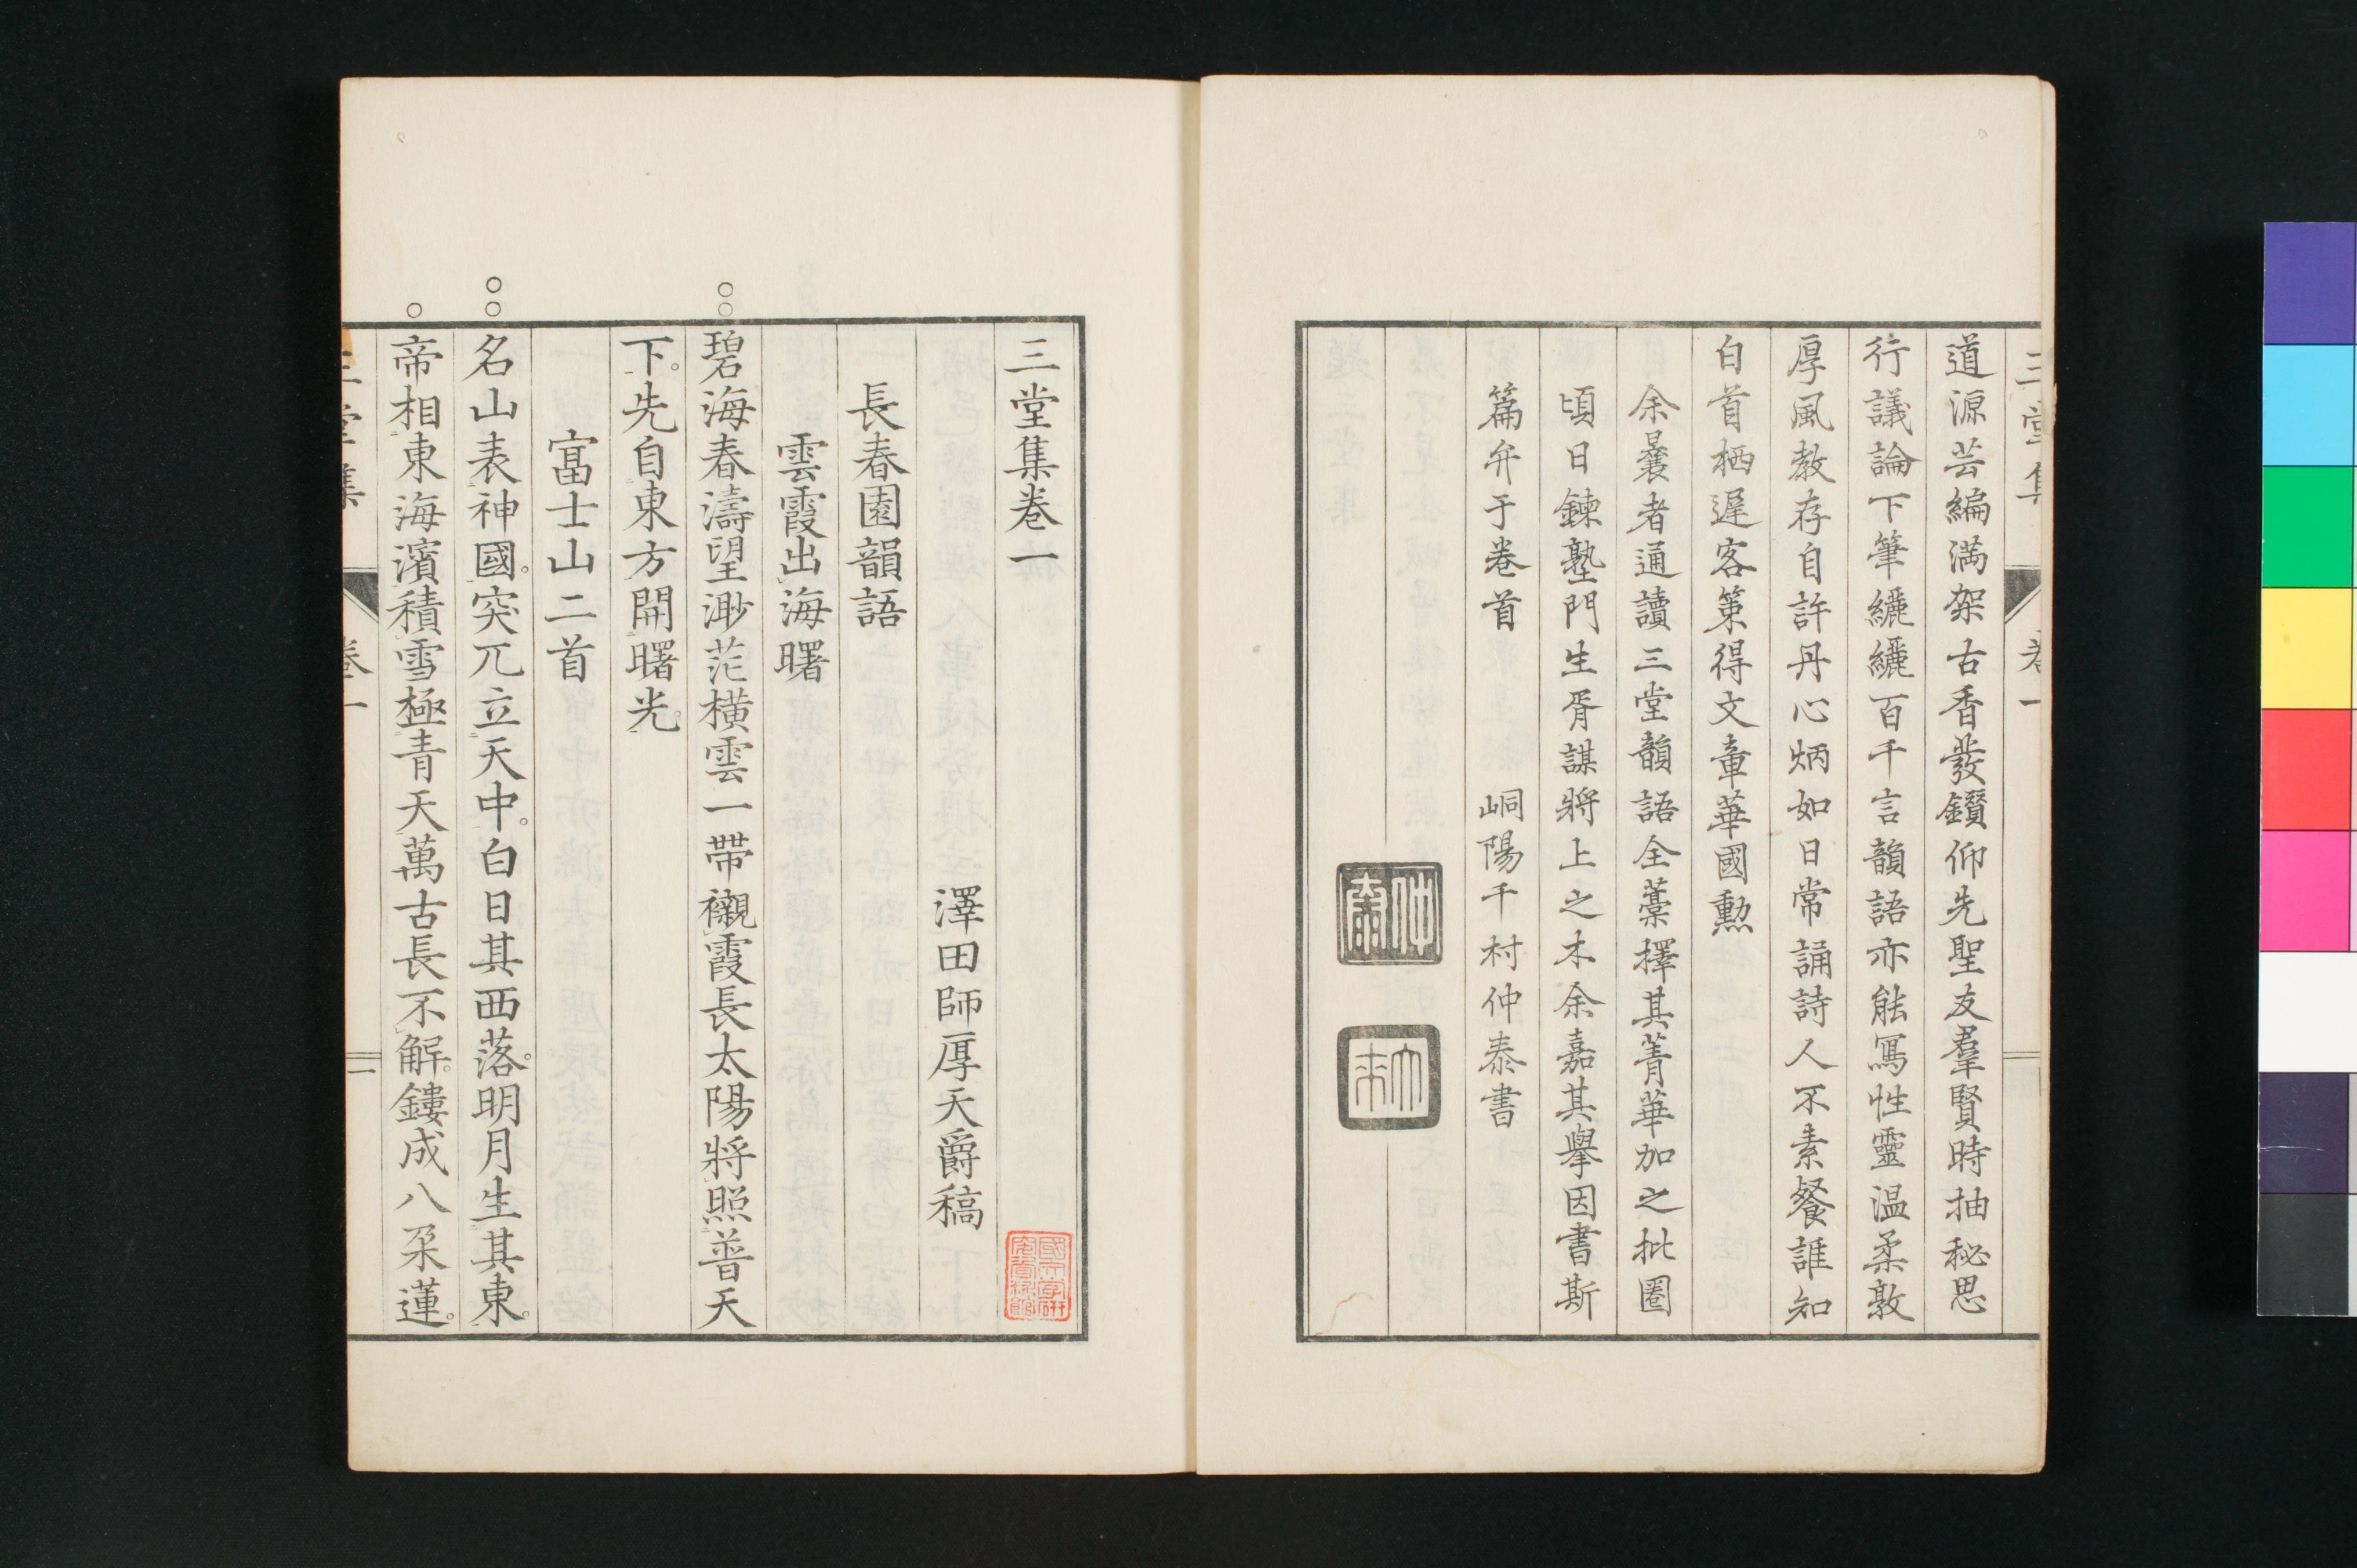 三堂集
卷一
道源芸編滿架古香發鑽仰先聖友羣賢時抽秘思
行議論下筆纚纚百千言韻語亦能寫性靈温柔敦
厚風教存自許丹心炳如日常誦詩人不素餐誰知
白首栖遲客策得文章華國勲
余曩者通讀三堂韻語全藁擇其菁華加之批圈
頃日鍊塾門生胥謀將上之木余嘉其擧因書斯
篇弁于卷首
峒陽千村仲泰書
三堂集卷一
澤田師厚天爵稿
長春園韻語
雲霞出海曙
碧海春濤望渺茫橫雲一帶襯霞長太陽將照普天
下。先自東方開曙光。
富士山二首
名山表神國。突兀立天中。白日其西落。明月生其東。
帝相東海濱積雪極青天萬古長不解。鏤成八朶蓮。
三堂集
卷一
一